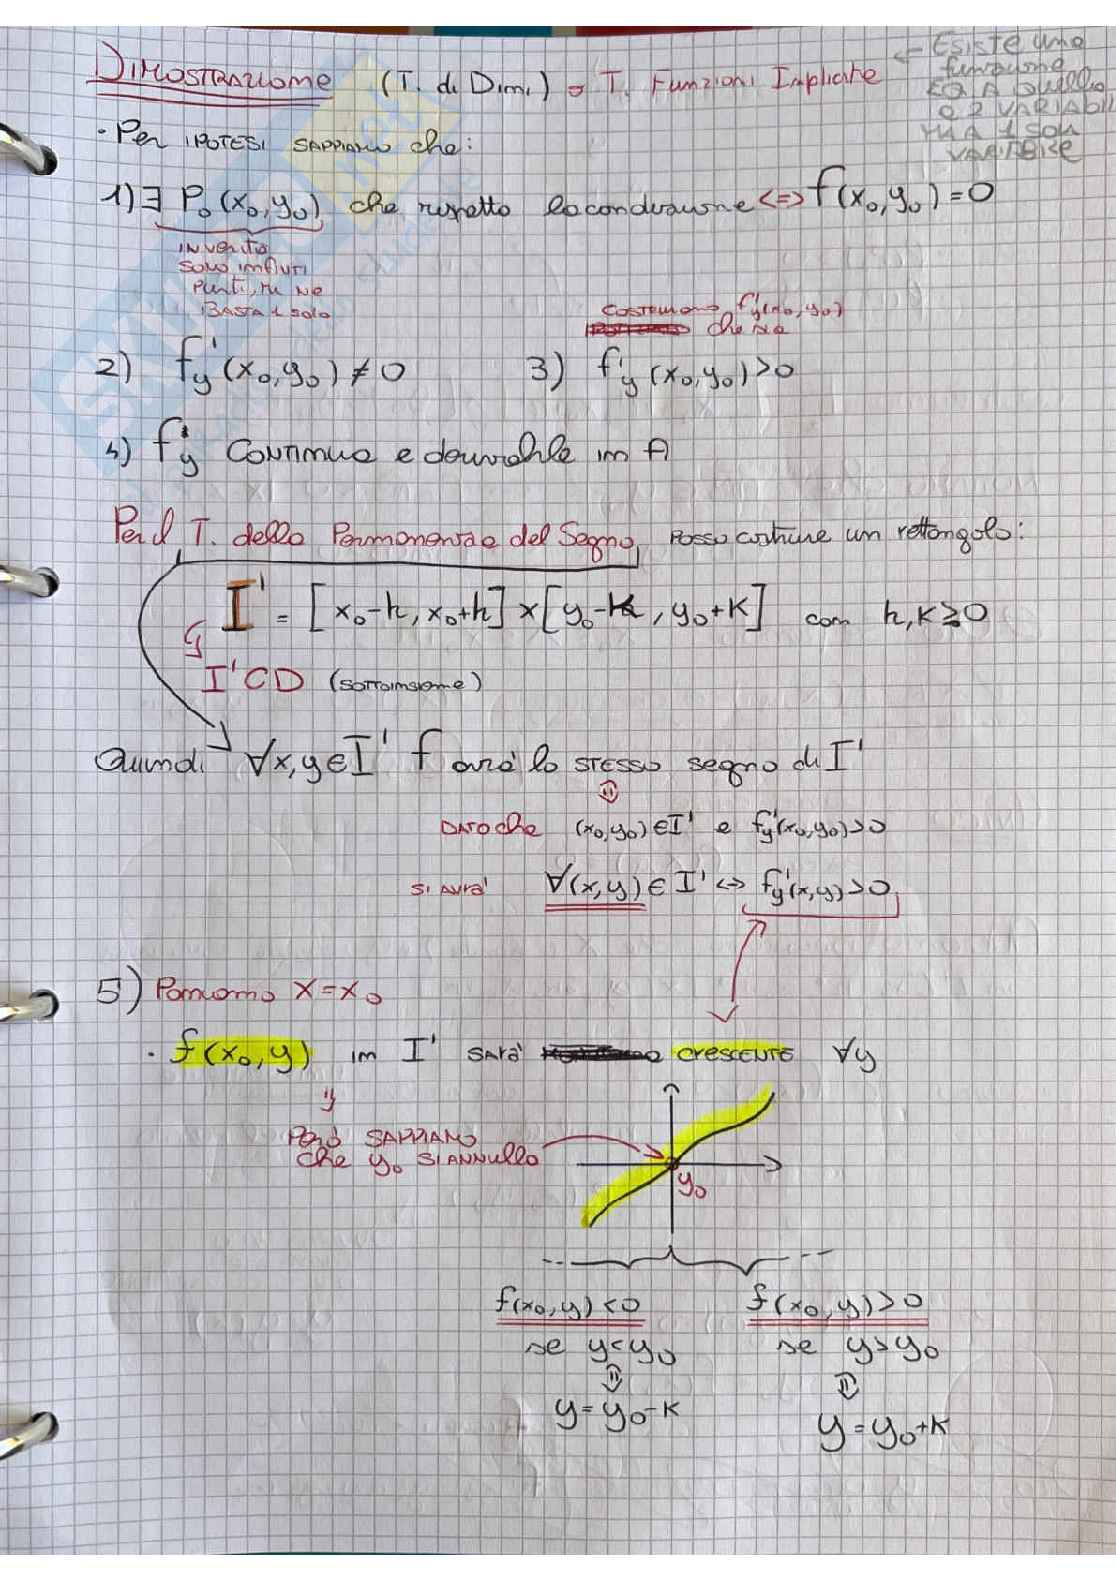 DIMOSTRAZIONE (T. di Dini) o T. Funzioni Implicite
← Esiste una
funzione
EQ A quella
a 2 VARIABILI
MA A 1 SOLA
VARIABILE
· Per IPOTESI SAPPIAMO che:
1) ∃ P₀(x₀,y₀) che rispetta la condizione <=> f(x₀,y₀)=0
IN verità
SONO infiniti
punti, ma ne
BASTA 1 solo
COSTRUIAMO f'y(x₀,y₀)
che sia
2) f'y(x₀,y₀) ≠ 0 3) f'y(x₀,y₀)>0
4) f'y CONTINUA e derivabile in A
Per il T. della Permanenza del Segno, posso costruire un rettangolo:
I' = [x₀-h, x₀+h] × [y₀-k, y₀+k] con h,k≥0
I'⊂D (sottoinsieme)
Quindi ∀x,y∈I' f avrà lo STESSO segno di I'
DATO che (x₀,y₀)∈I' e f'y(x₀,y₀)>0
SI AVRA' ∀(x,y)∈I' <=> f'y(x,y)>0
5) Poniamo x=x₀
· f(x₀,y) in I' SARA' CRESCENTE ∀y
Però SAPPIAMO
che y₀ SI ANNULLA
y₀
f(x₀,y)<0 f(x₀,y)>0
se y<y₀ se y>y₀
y=y₀-k y=y₀+k